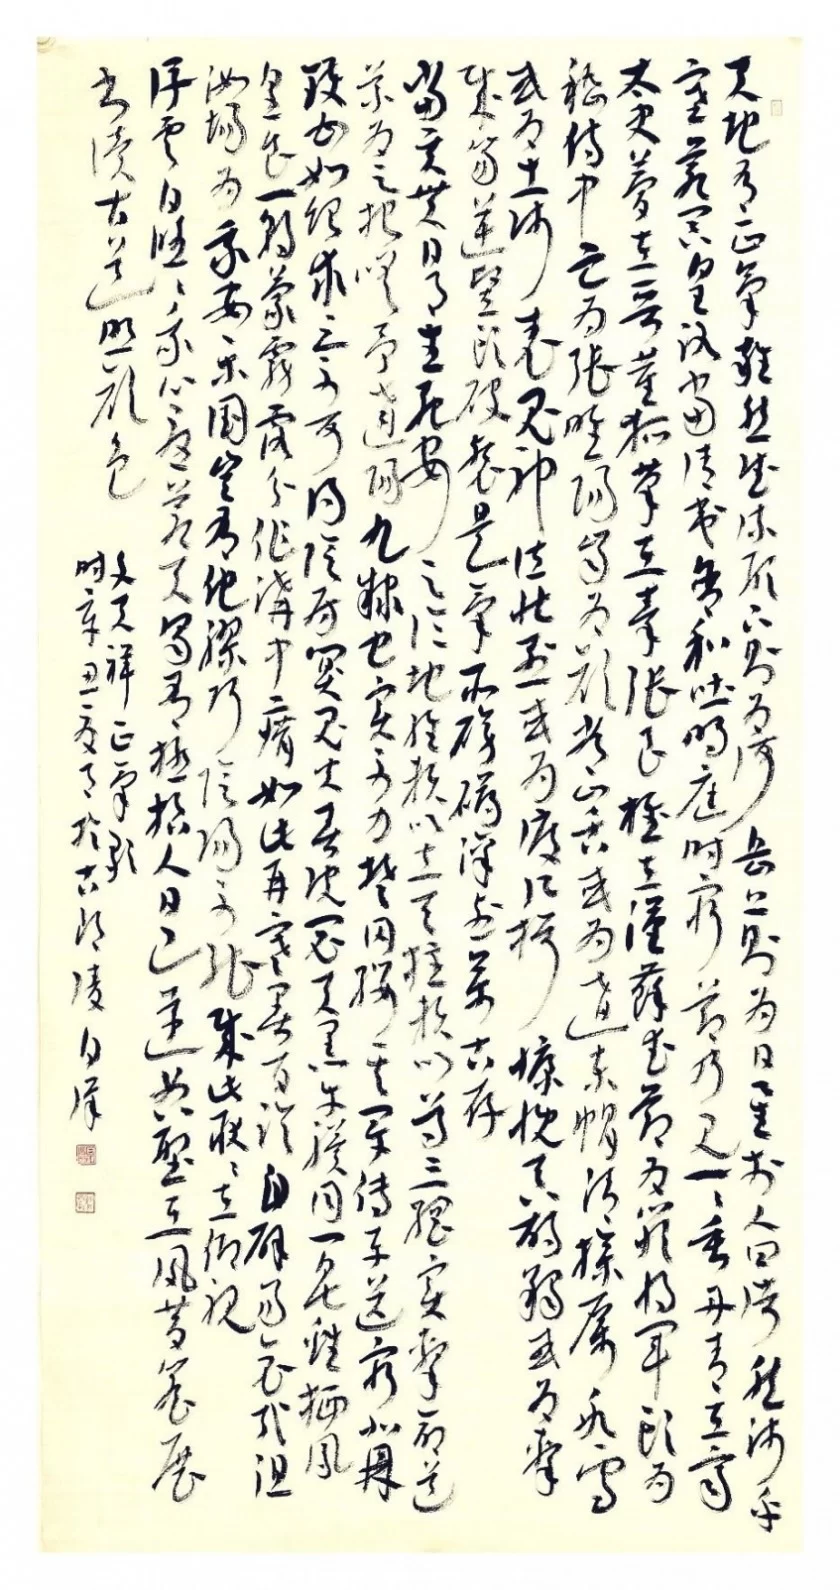 天地有正氣雜然賦流形下則為河岳上則為日星於人曰浩然沛乎
塞蒼冥皇路當清夷含和吐明庭時窮節乃見一一垂丹青在齊
太史簡在晉董狐筆在秦張良椎在漢蘇武節為嚴將軍頭為
嵇侍中血為張睢陽齒為顏常山舌或為遼東帽清操厲冰雪
或為出師表鬼神泣壯烈或為渡江楫慷慨吞胡羯或為擊
賊笏逆豎頭破裂是氣所磅礴凜烈萬古存
當其貫日月生死安足論地維賴以立天柱賴以尊三綱實繫命道
義為之根嗟予遘陽九隸也實不力楚囚纓其冠傳車送窮北鼎
鑊甘如飴求之不可得陰房闃鬼火春院閟天黑牛驥同一皂雞棲鳳
凰食一朝蒙霧露分作溝中瘠如此再寒暑百沴自辟易哀哉沮
洳場為我安樂國豈有他繆巧陰陽不能賊此耿耿在仰視
浮雲白悠悠我心悲蒼天曷有極哲人日已遠典型在夙昔風簷展
書讀古道照顏色
文天祥正氣歌
時辛丑夏月於古陵白